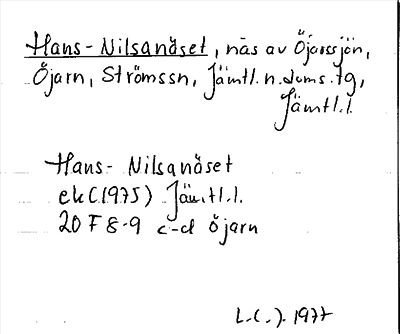 Hans-Nilsanäset, näs av Öjarssjön,
Öjarn, Strömssn, Jämtl. n. doms. tg,
Jämtl. l.
Hans-Nilsanäset
ek (1975) Jämtl. l.
20 F 8-9 c-d Öjarn
1977